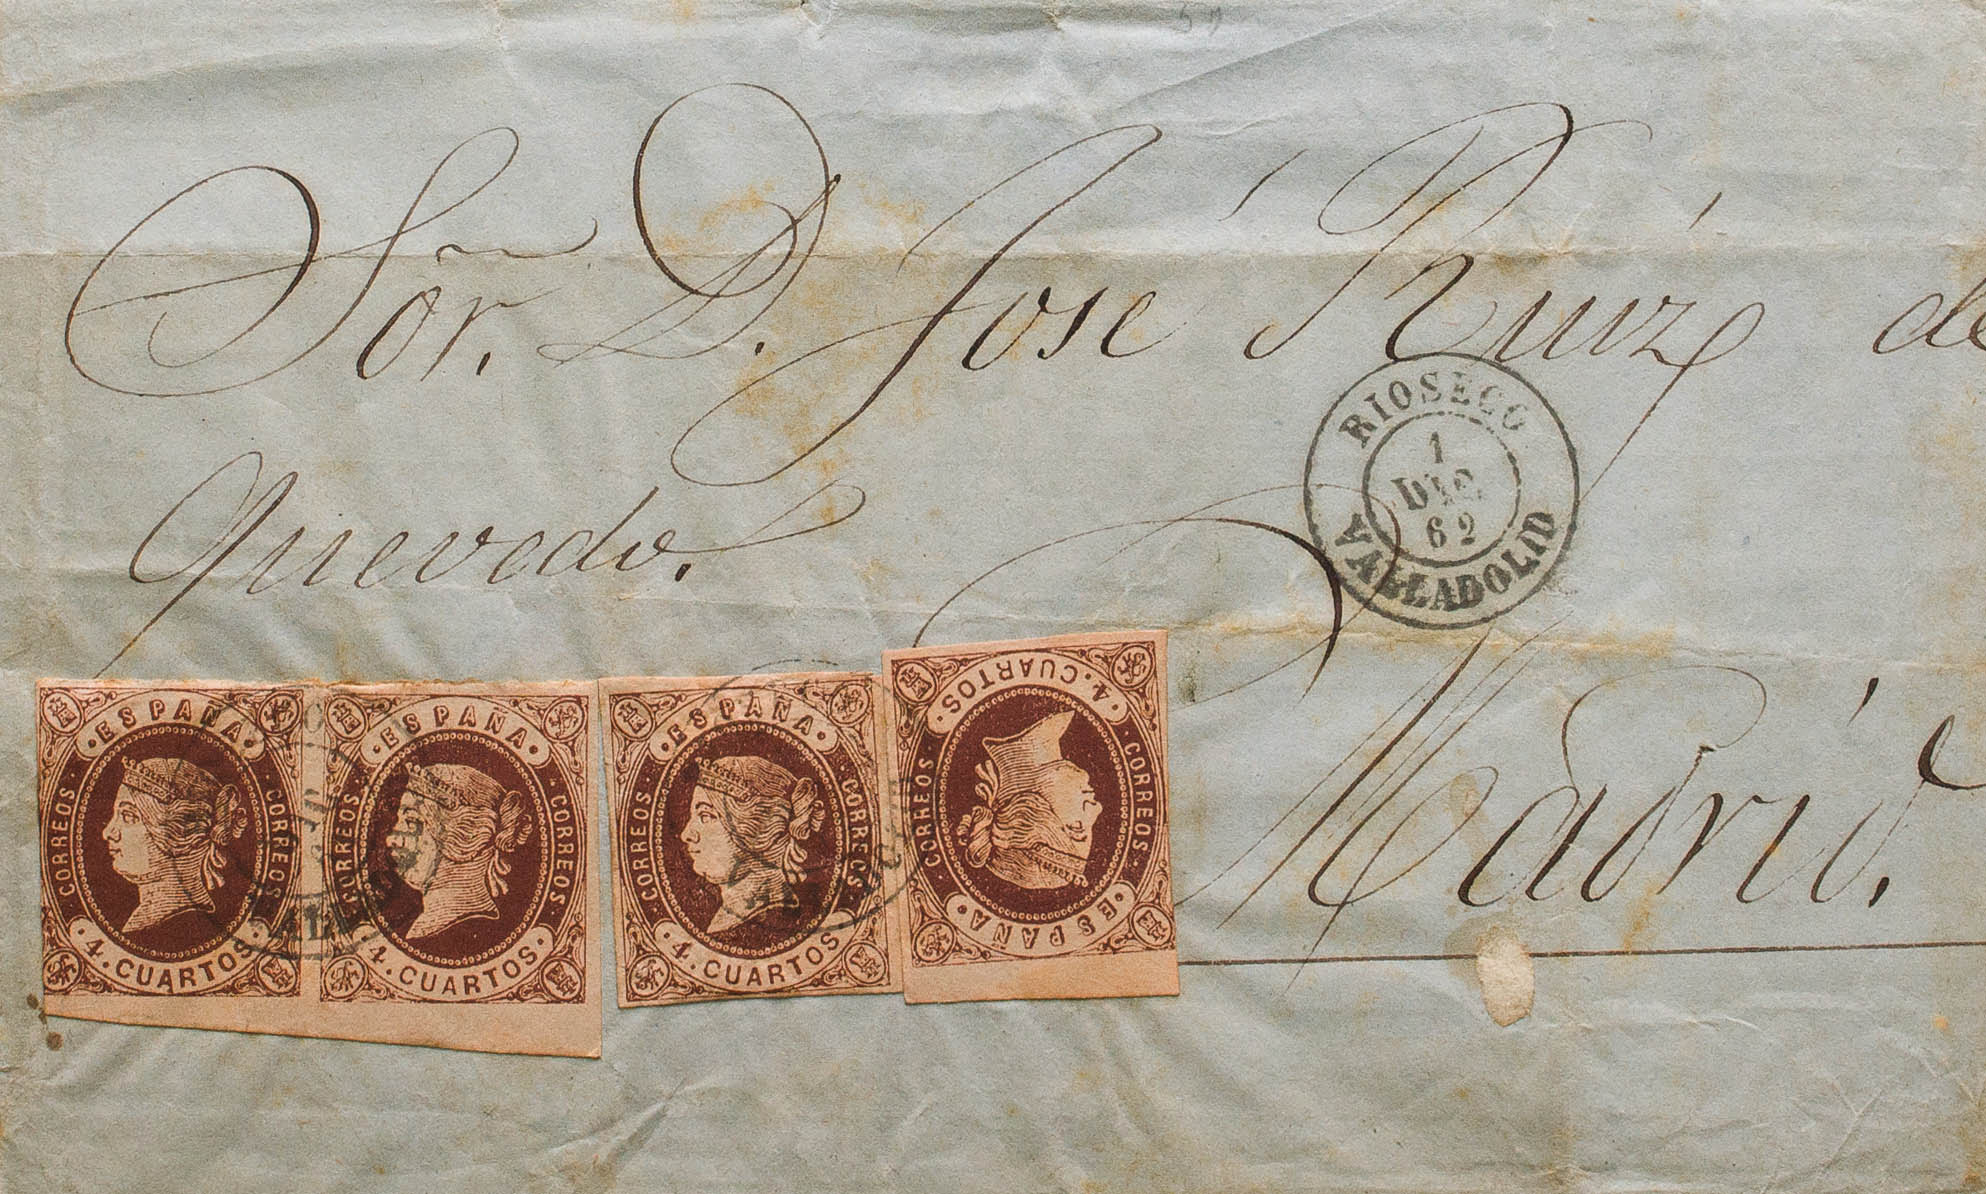 Sõr. D. José Ruiz de
Quevedo.
RIOSECO
1
DIC
62
VALLADOLID
Madrid.
ESPAÑA
CORREOS
CORREOS
4. CUARTOS
ESPAÑA
CORREOS
CORREOS
4. CUARTOS
ESPAÑA
CORREOS
CORREOS
4. CUARTOS
ESPAÑA
CORREOS
CORREOS
4. CUARTOS